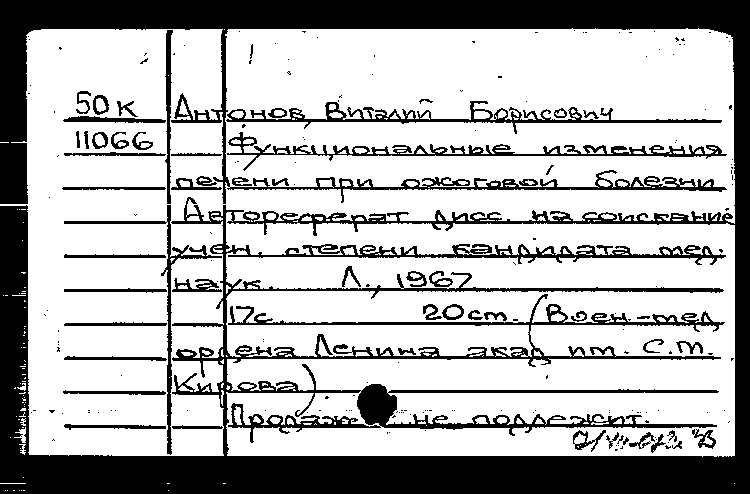 50к Антонов, Виталий Борисович
11066 Функциональные изменения
печени при ожоговой болезни
Автореферат дисс. на соискание
учен. степени кандидата мед.
наук. Л., 1967
17с. 20см. (Воен-мед
ордена Ленина акад им. С.М.
Кирова)
Продаж не подлежит.